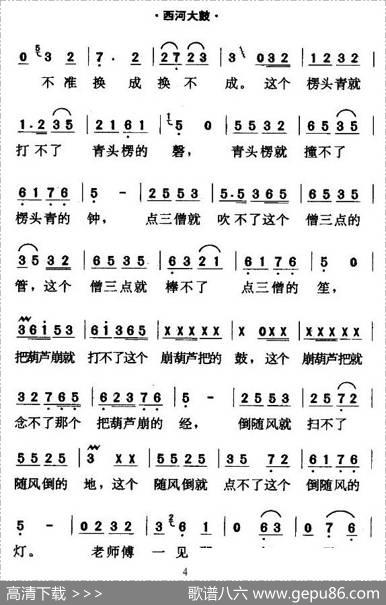 ·西河大鼓·
0 3 2 | 7· 2 | 2 7 2 3 | 3 0 3 2 | 1 2 3 2
不准 换 成 换 不 成。这个 楞头青就
1· 2 3 5 | 2 1 6 1 | 5 0 | 5 5 3 2 | 6 5 3 5
打不了 青头楞的 磬， 青头楞就 撞不了
6 1 7 6 | 5 - | 2 5 5 3 | 5·5 3 6 5 | 5 3 5 6
楞头青的 钟， 点三僧就 吹不了这个 僧三点的
3 5 3 2 | 6 5 3 5 | 6 3 2 1 | 6 1 7 6 | 5 0
管，这个 僧三点就 棒不了 点三僧的 笙，
3 6 i 5 3 | 6 i 3 6 5 | x x x x x | x 0 x x | x x x x x
把葫芦崩就 打不了这个 崩葫芦把的 鼓，这个 崩葫芦把就
3 2 7 6 5 | 6 2 3 7 6 | 5 - | 3 5 5 3 | 2 5 7 2
念不了那个 把葫芦崩的 经， 倒随风就 扫不了
5 5 2 5 | 3 x x | 5 5 2 5 | 3 5 7 2 | 6 1 7 6
随风倒的 地，这个 随风倒就 点不了这个 倒随风的
5 - | 0 2 3 2 | 3· 6 1 | 0 6 3 | 0 7
灯。 老师傅 一 见
4
高清下载 >>>
歌谱八六 www.gepu86.com